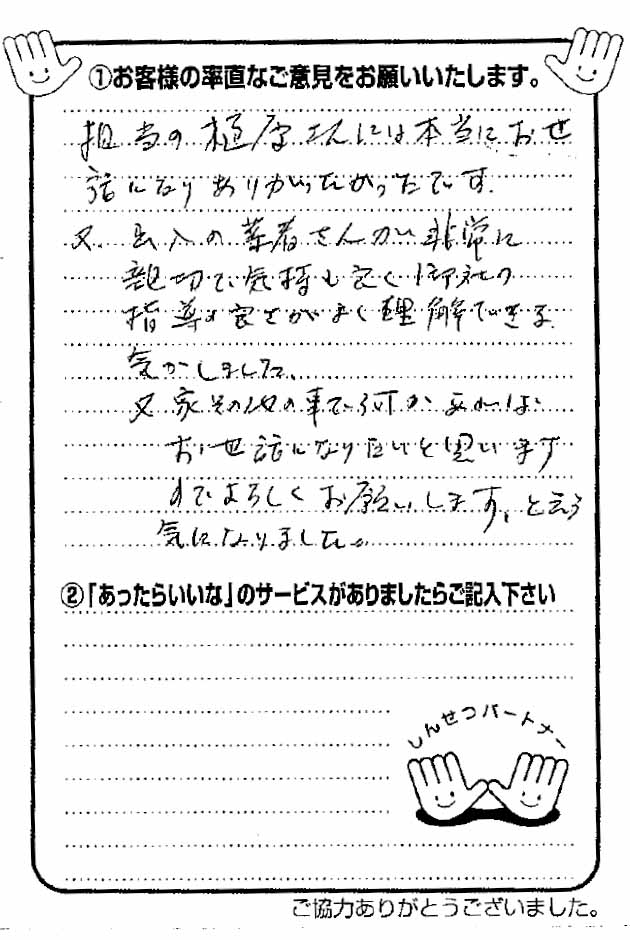 ①お客様の率直なご意見をお願いいたします。
担当の植原さんには本当におせ
話になりありがたかったです.
又、出入の業者さんが非常に
親切で気持も良く御社の
指導の良さがよく理解できる
気がしました、
又家其の他の事で何かあれば
お世話になりたいと思います
のでよろしくお願いします、と云う
気になりました。
②「あったらいいな」のサービスがありましたらご記入下さい
しんせつパートナー
ご協力ありがとうございました。